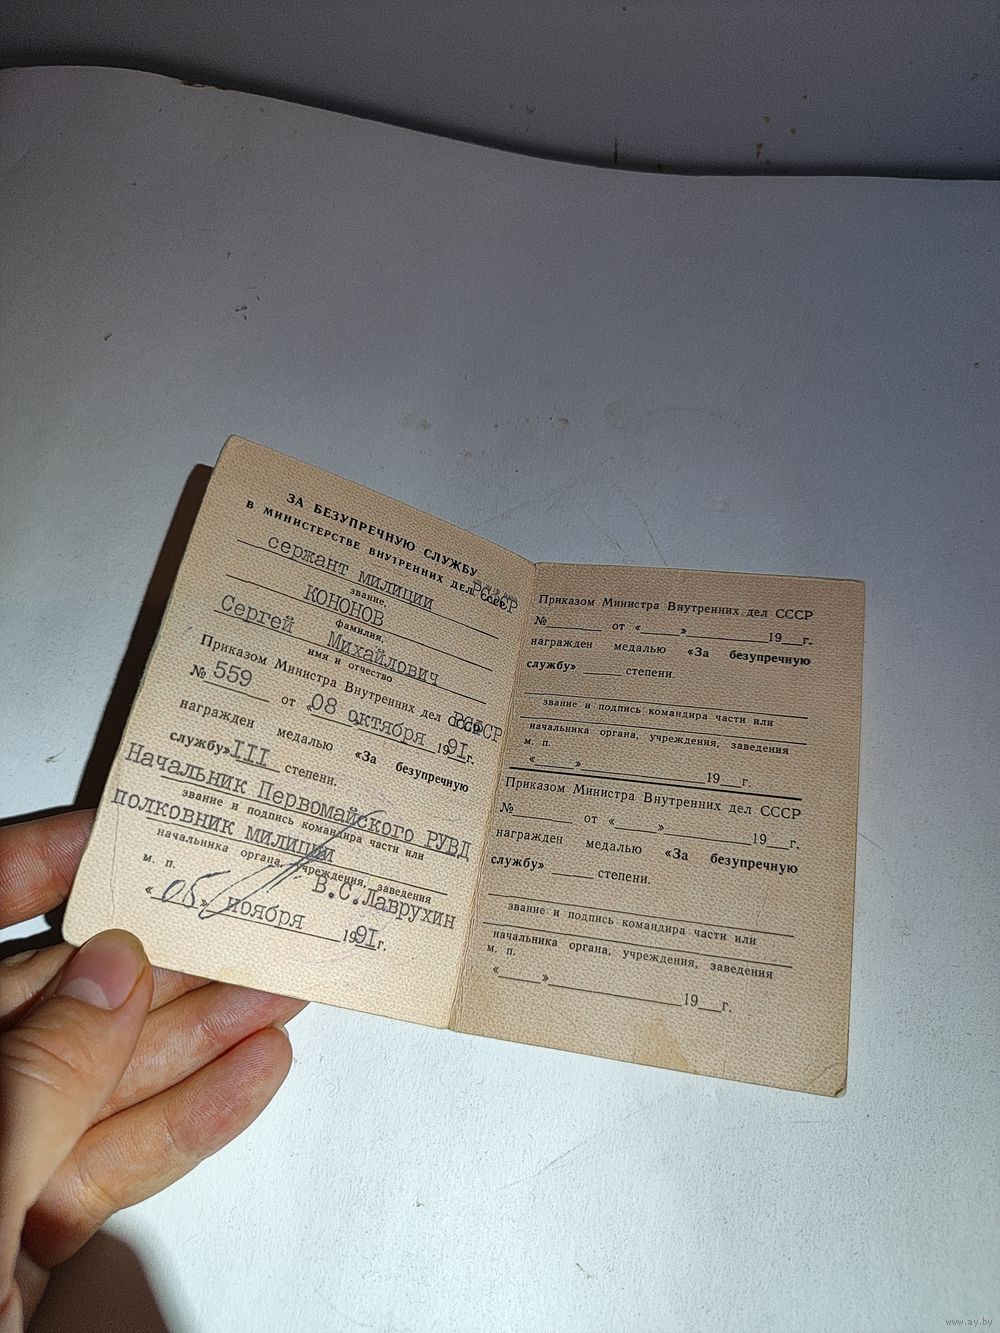 ЗА БЕЗУПРЕЧНУЮ СЛУЖБУ
В МИНИСТЕРСТВЕ ВНУТРЕННИХ ДЕЛ СССР
РСФСР
сержант милиции
звание,
КОНОНОВ
фамилия,
Сергей Михайлович
имя и отчество
Приказом Министра Внутренних дел СССР
РСФСР
№ 559 от «08 октября 1991г.
награжден медалью «За безупречную
службу» III степени.
Начальник Первомайского РУВД
звание и подпись командира части или
полковник милиции
начальника органа, учреждения, заведения
м. п.
В.С.Лаврухин
«05» ноября 1991г.
Приказом Министра Внутренних дел СССР
№ от « » 19 г.
награжден медалью «За безупречную
службу» степени.
звание и подпись командира части или
начальника органа, учреждения, заведения
м. п.
« » 19 г.
Приказом Министра Внутренних дел СССР
№ от « » 19 г.
награжден медалью «За безупречную
службу» степени.
звание и подпись командира части или
начальника органа, учреждения, заведения
м. п.
« » 19 г.
www.ay.by